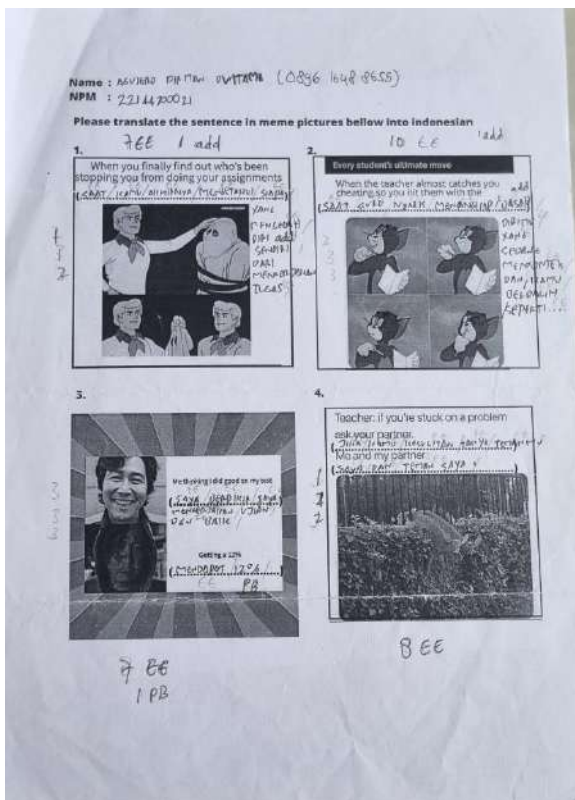 Name : DIMAS (0896 1648 8655)
NPM : 22144200021
Please translate the sentence in meme pictures bellow into indonesian
7EE 1 add
10 EE 1 add
1.
When you finally find out who's been
stopping you from doing your assignments
(SAAT/KAMU/AKHIRNYA/MENGETAHUI/SIAPA/
YANG
MENGHENTI
DIRI add
SENDIRI
DARI
TUGAS
2.
Every student's ultimate move
When the teacher almost catches you
cheating so you hit them with the
add
(SAAT GURU
YANG
MENYONTEK
DAN/KAMU
SEPERTI...
3.
Me thinking I did good on my test
(SAYA BERPIKIR/SAYA
MENGERJAKAN UJIAN
DGN BAIK/
Getting a 12%
(MENDAPAT/12%/
EE PB
7 EE
1 PB
4.
Teacher: if you're stuck on a problem
ask your partner.
(JIKA KAMU KESULITAN TANYA
Me and my partner
(SAYA DAN TEMAN SAYA
8 EE